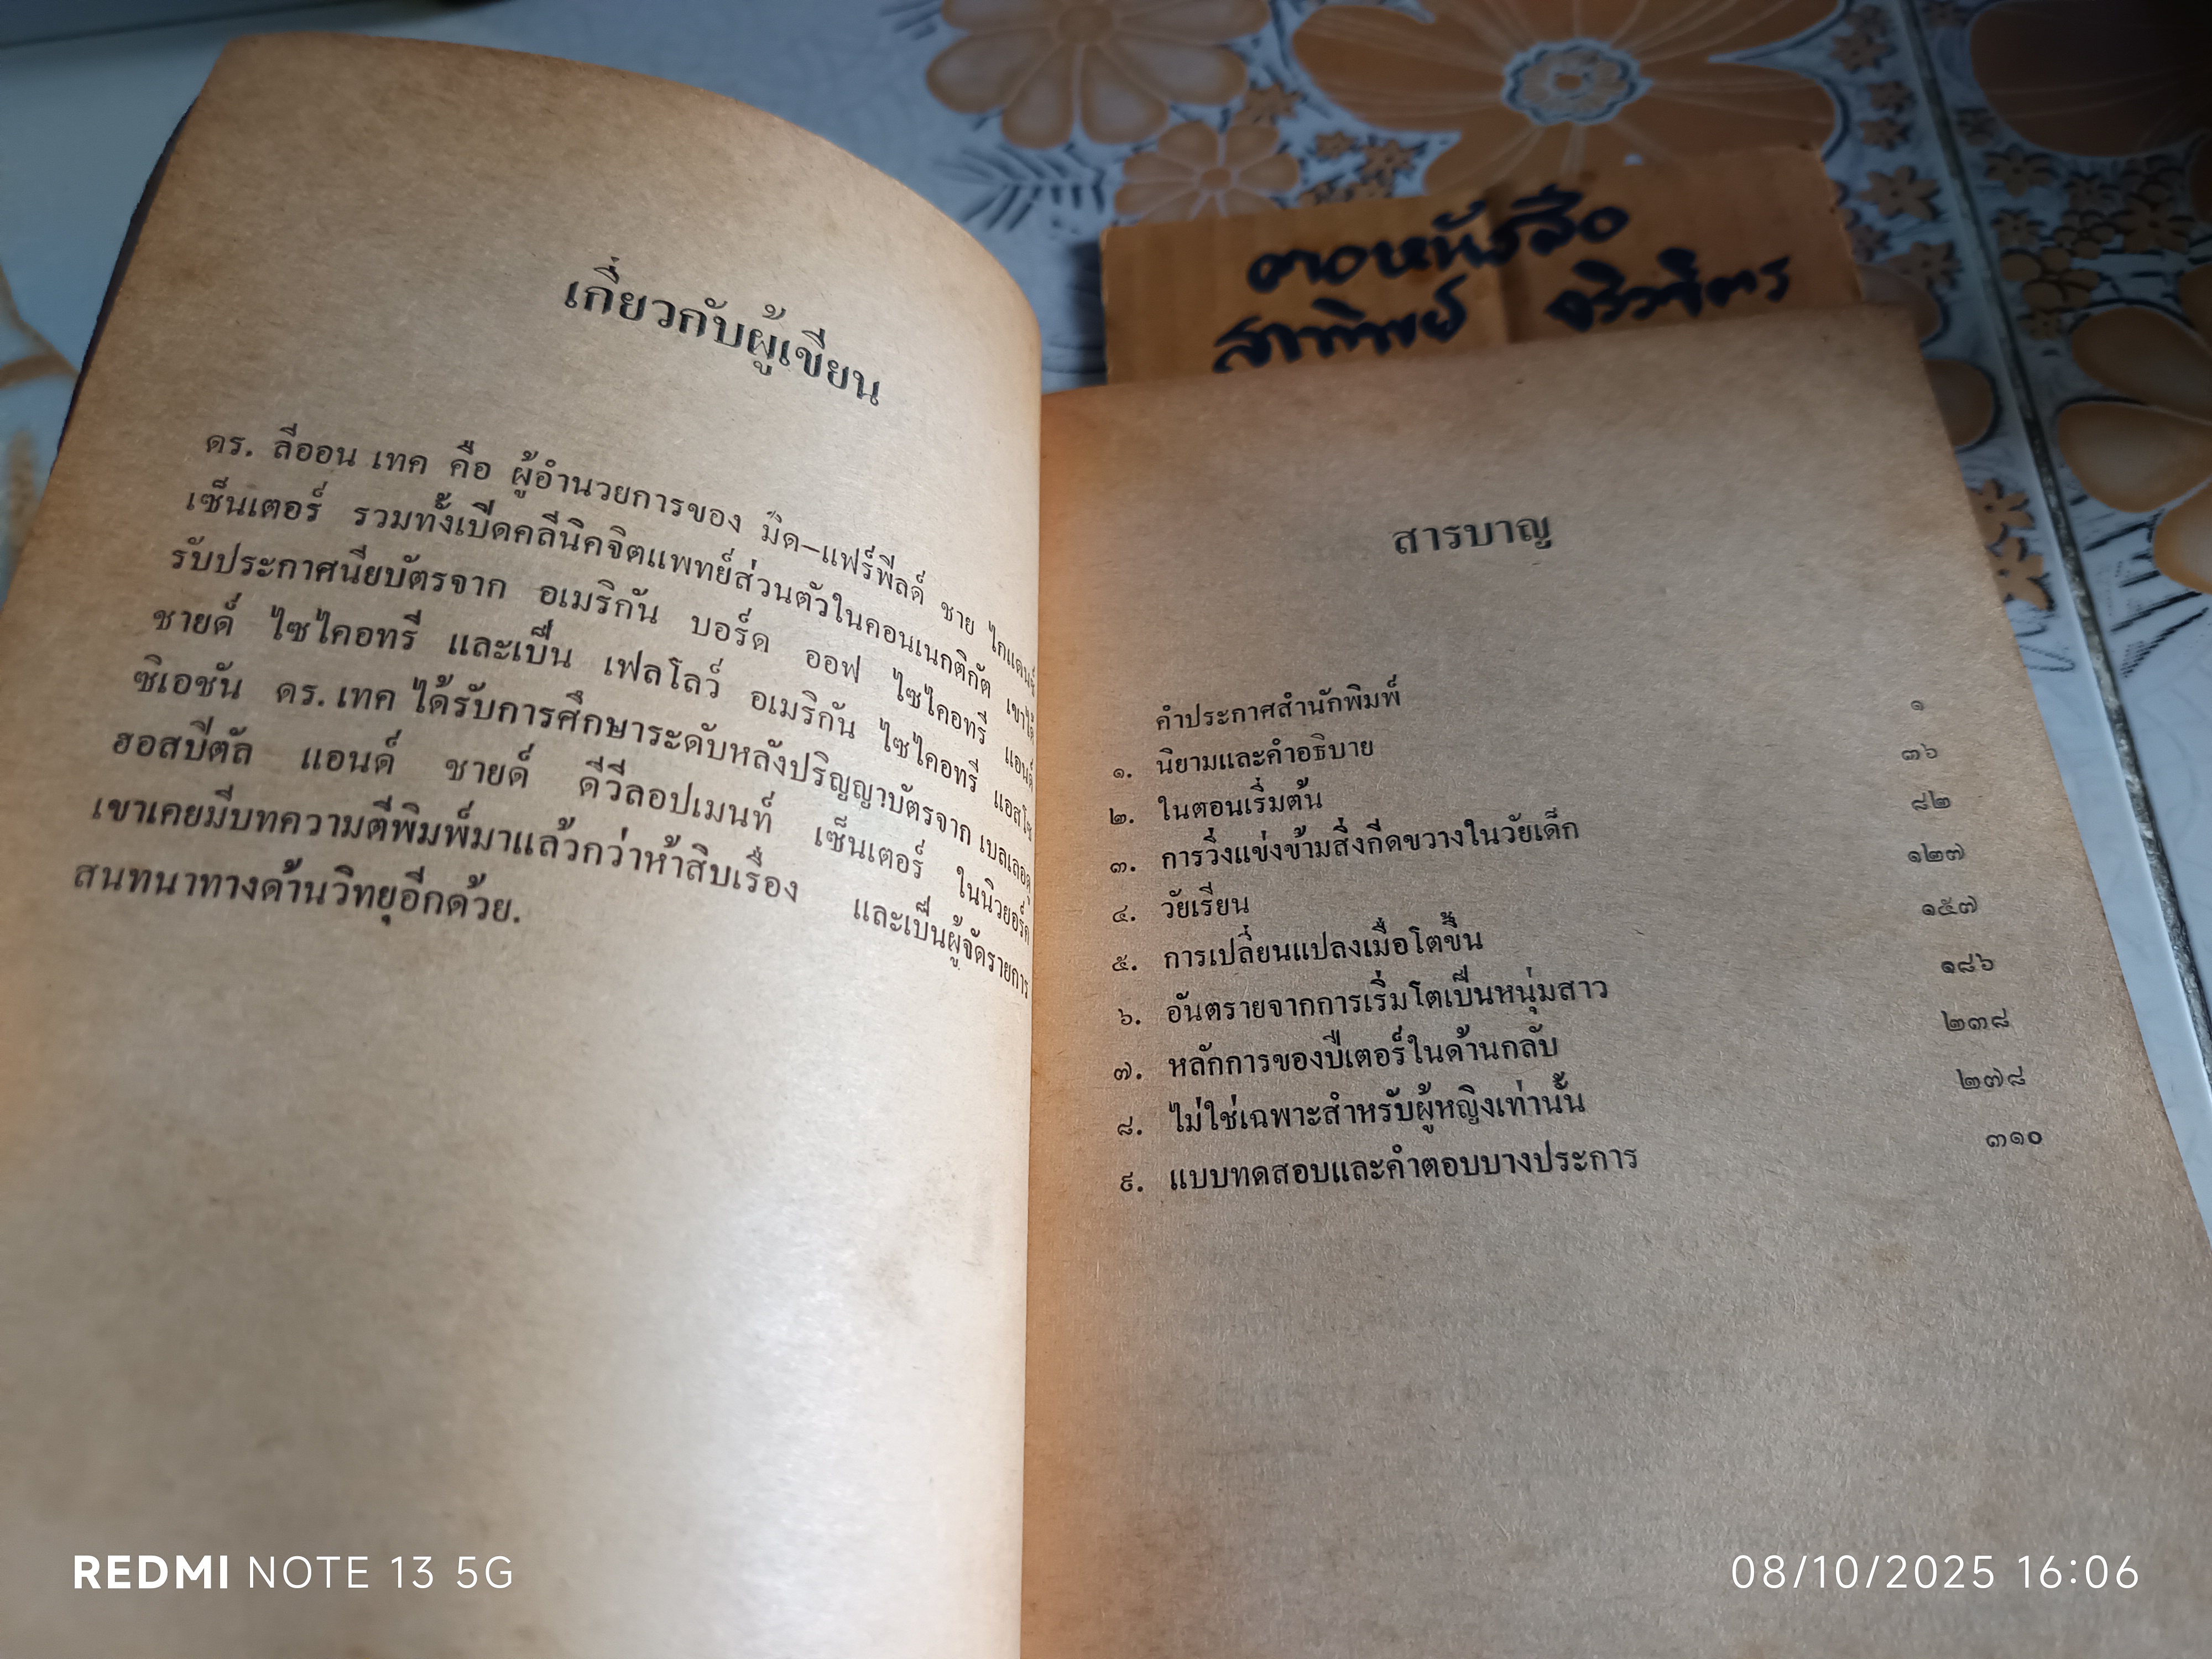 เกี่ยวกับผู้เขียน
ดร. ลีออน เทค คือ ผู้อำนวยการของ มิด–แฟร์ฟีลด์ ชาย ไกแดนซ์
เซ็นเตอร์ รวมทั้งเปิดคลีนิคจิตแพทย์ส่วนตัวในคอนเนกติกัต เขาได้
รับประกาศนียบัตรจาก อเมริกัน บอร์ด ออฟ ไซไคอทรี แอนด์
ชายด์ ไซไคอทรี และเป็น เฟลโลว์ อเมริกัน ไซไคอทรี แอสโซ
ซิเอชัน ดร. เทค ได้รับการศึกษาระดับหลังปริญญาบัตรจาก
ฮอสปีตัล แอนด์ ชายด์ ดีวีลอปเมนท์ เซ็นเตอร์ ในนิวยอร์ก
เขาเคยมีบทความตีพิมพ์มาแล้วกว่าห้าสิบเรื่อง และเป็นผู้จัดรายการ
สนทนาทางด้านวิทยุอีกด้วย.
ตาอหนังสือ
สาทิพย์
สารบาญ
คำประกาศสำนักพิมพ์ ๑
๑. นิยามและคำอธิบาย ๓๖
๒. ในตอนเริ่มต้น ๘๒
๓. การวิ่งแข่งข้ามสิ่งกีดขวางในวัยเด็ก ๑๒๗
๔. วัยเรียน ๑๕๗
๕. การเปลี่ยนแปลงเมื่อโตขึ้น ๑๘๖
๖. อันตรายจากการเริ่มโตเป็นหนุ่มสาว ๒๓๘
๗. หลักการของปีเตอร์ในด้านกลับ ๒๗๘
๘. ไม่ใช่เฉพาะสำหรับผู้หญิงเท่านั้น ๓๑๐
๙. แบบทดสอบและคำตอบบางประการ
REDMI NOTE 13 5G
08/10/2025 16:06